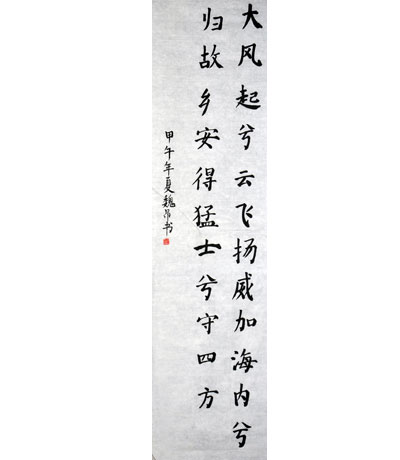 大风起兮云飞扬威加海内兮
归故乡安得猛士兮守四方
甲午年夏魏书